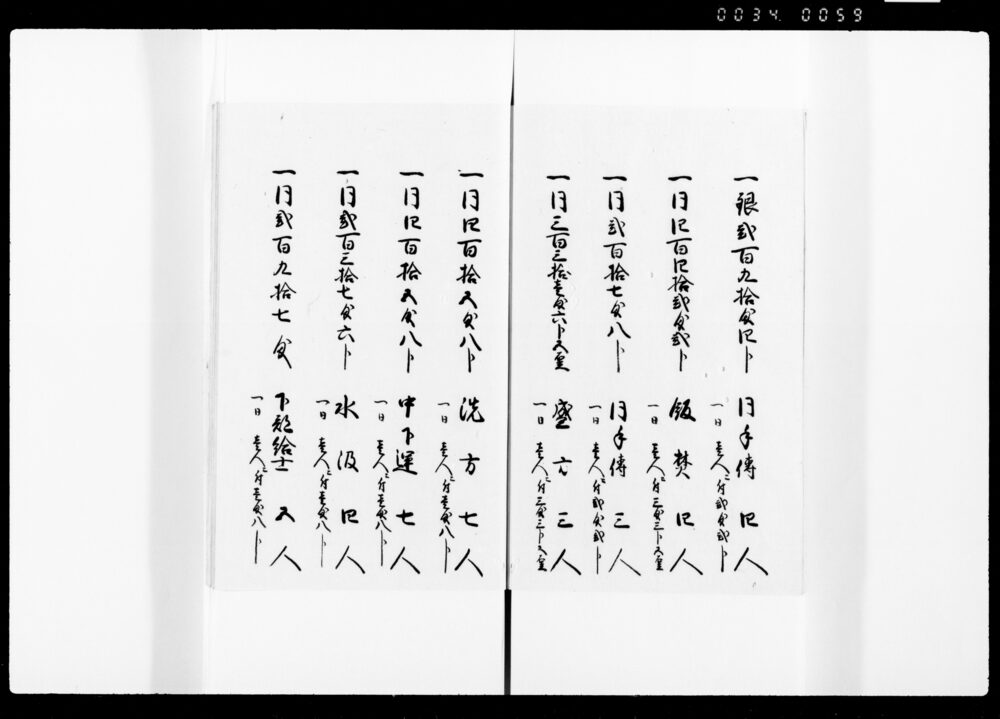 0034. 0059
一銀弐百九拾匁四分 同手傳 四人
一日 壱人ニ付弐匁弐分
一同四百四拾弐匁弐分 飯焚 四人
一日 壱人ニ付三匁三分五厘
一同弐百拾七匁八分 同手傳 三人
一日 壱人ニ付弐匁弐分
一同三百三拾壱匁六分五厘 盛方 三人
一日 壱人ニ付三匁三分五厘
一同四百拾五匁八分 洗方 七人
一日 壱人ニ付壱匁八分
一同四百拾五匁八分 中下運 七人
一日 壱人ニ付壱匁八分
一同弐百三拾七匁六分 水汲 四人
一日 壱人ニ付壱匁八分
一同弐百九拾七匁 下部給士 五人
一日 壱人ニ付壱匁八分